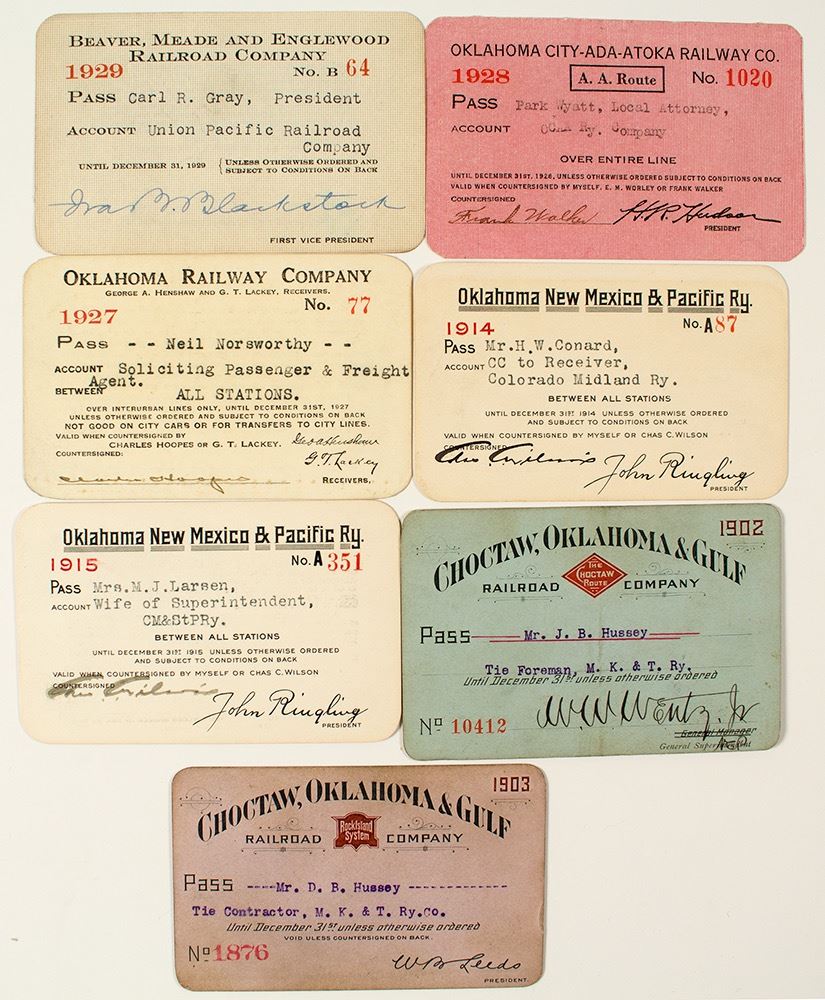 BEAVER, MEADE AND ENGLEWOOD
RAILROAD COMPANY
1929 No. B 64
PASS Carl R. Gray, President
ACCOUNT Union Pacific Railroad
Company
UNTIL DECEMBER 31, 1929 { UNLESS OTHERWISE ORDERED AND
SUBJECT TO CONDITIONS ON BACK
Ira B. Blackstock
FIRST VICE PRESIDENT
OKLAHOMA CITY-ADA-ATOKA RAILWAY CO.
1928 A. A. Route No. 1020
PASS Park Wyatt, Local Attorney,
ACCOUNT OCAA Ry. Company
OVER ENTIRE LINE
UNTIL DECEMBER 31ST, 1928, UNLESS OTHERWISE ORDERED SUBJECT TO CONDITIONS ON BACK
VALID WHEN COUNTERSIGNED BY MYSELF, E. M. WORLEY OR FRANK WALKER
COUNTERSIGNED
Frank Walker H.R. Hudson
PRESIDENT
OKLAHOMA RAILWAY COMPANY
GEORGE A. HENSHAW AND G. T. LACKEY, RECEIVERS.
1927 No. 77
PASS - - Neil Norsworthy - -
ACCOUNT Soliciting Passenger & Freight
Agent.
BETWEEN ALL STATIONS.
OVER INTERURBAN LINES ONLY, UNTIL DECEMBER 31ST, 1927
UNLESS OTHERWISE ORDERED AND SUBJECT TO CONDITIONS ON BACK
NOT GOOD ON CITY CARS OR FOR TRANSFERS TO CITY LINES.
VALID WHEN COUNTERSIGNED BY
CHARLES HOOPES OR G. T. LACKEY. Geo A Henshaw
COUNTERSIGNED: G.T. Lackey
Charles Hoopes RECEIVERS,
Oklahoma New Mexico & Pacific Ry.
1914 No. A 87
PASS Mr.H.W.Conard,
ACCOUNT CC to Receiver,
Colorado Midland Ry.
BETWEEN ALL STATIONS
UNTIL DECEMBER 31ST 1914 UNLESS OTHERWISE ORDERED
AND SUBJECT TO CONDITIONS ON BACK
VALID WHEN COUNTERSIGNED BY MYSELF OR CHAS C. WILSON
COUNTERSIGNED
Chas C. Wilson John Ringling
PRESIDENT
Oklahoma New Mexico & Pacific Ry.
1915 No. A 351
PASS Mrs.M.J.Larsen,
ACCOUNT Wife of Superintendent,
CM&StPRy.
BETWEEN ALL STATIONS
UNTIL DECEMBER 31ST 1915 UNLESS OTHERWISE ORDERED
AND SUBJECT TO CONDITIONS ON BACK
VALID WHEN COUNTERSIGNED BY MYSELF OR CHAS C. WILSON
COUNTERSIGNED
Chas C. Wilson John Ringling
PRESIDENT
1902
CHOCTAW, OKLAHOMA & GULF
RAILROAD THE CHOCTAW ROUTE COMPANY
Pass Mr. J. B. Hussey
Tie Foreman, M. K. & T. Ry.
Until December 31st unless otherwise ordered
No 10412 W.W. Wentz, Jr
General Manager
General Superintendent
1903
CHOCTAW, OKLAHOMA & GULF
RAILROAD Rock Island System COMPANY
Pass ----Mr. D. B. Hussey -------------
Tie Contractor, M. K. & T. Ry.Co.
Until December 31st unless otherwise ordered
VOID ULESS COUNTERSIGNED ON BACK.
No 1876 W B Leeds
PRESIDENT.